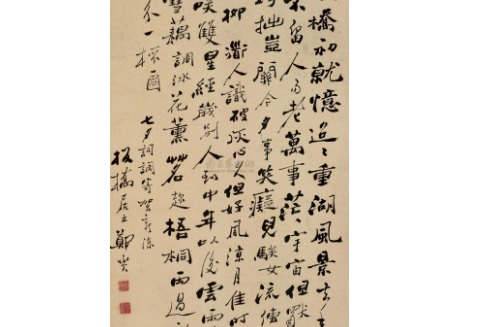 橋初就憶追重湖風景去年
留人易老萬事茫茫宇宙但獨
巧拙豈關今夕事笑癡兒騃女流傳
柳衢人識破淡心人但好風涼月佳時
雙星經歲別人到中年以後雲雨
雪藕調冰花薰茗趁梧桐雨過
一
七夕詞調寄賀新涼
板橋居士鄭燮